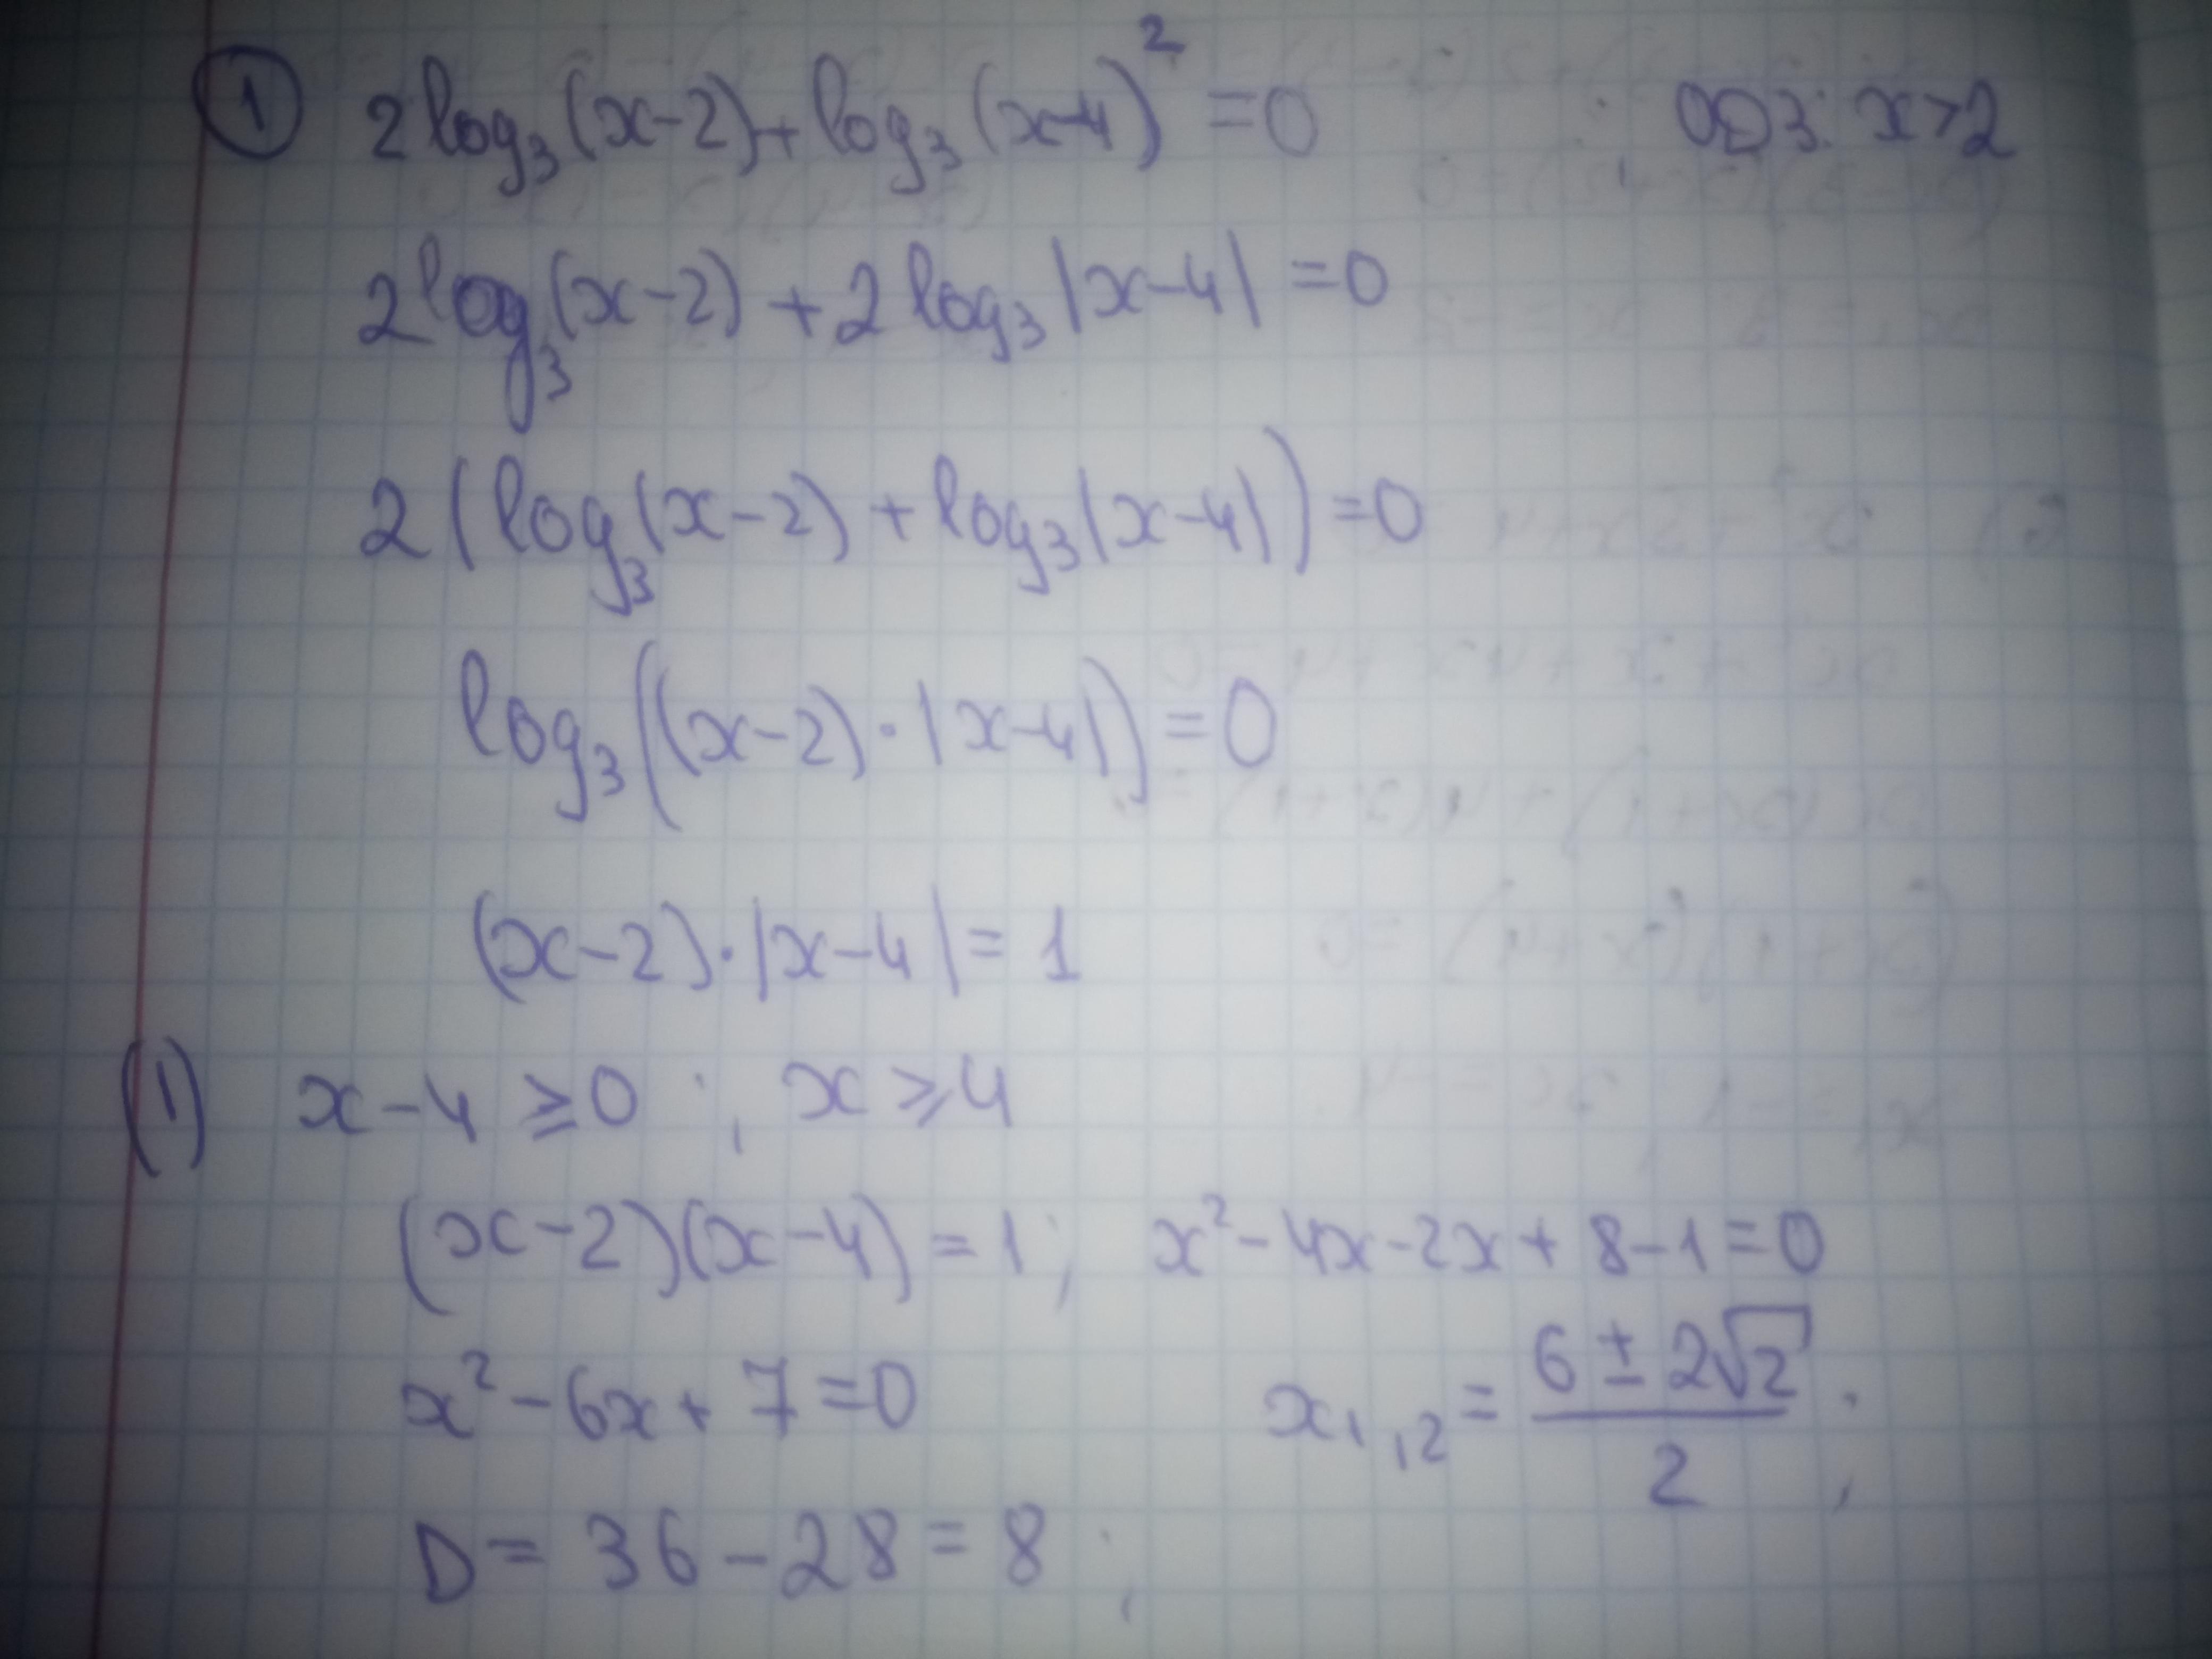 ① 2log₃(x-2)+log₃(x-4)² =0 ОДЗ: x>2
2log₃(x-2)+2log₃|x-4|=0
2(log₃(x-2)+log₃|x-4|)=0
log₃((x-2)·|x-4|)=0
(x-2)·|x-4|=1
(1) x-4⩾0; x⩾4
(x-2)(x-4)=1; x²-4x-2x+8-1=0
x²-6x+7=0 x₁,₂=(6±2√2)/2;
D=36-28=8;